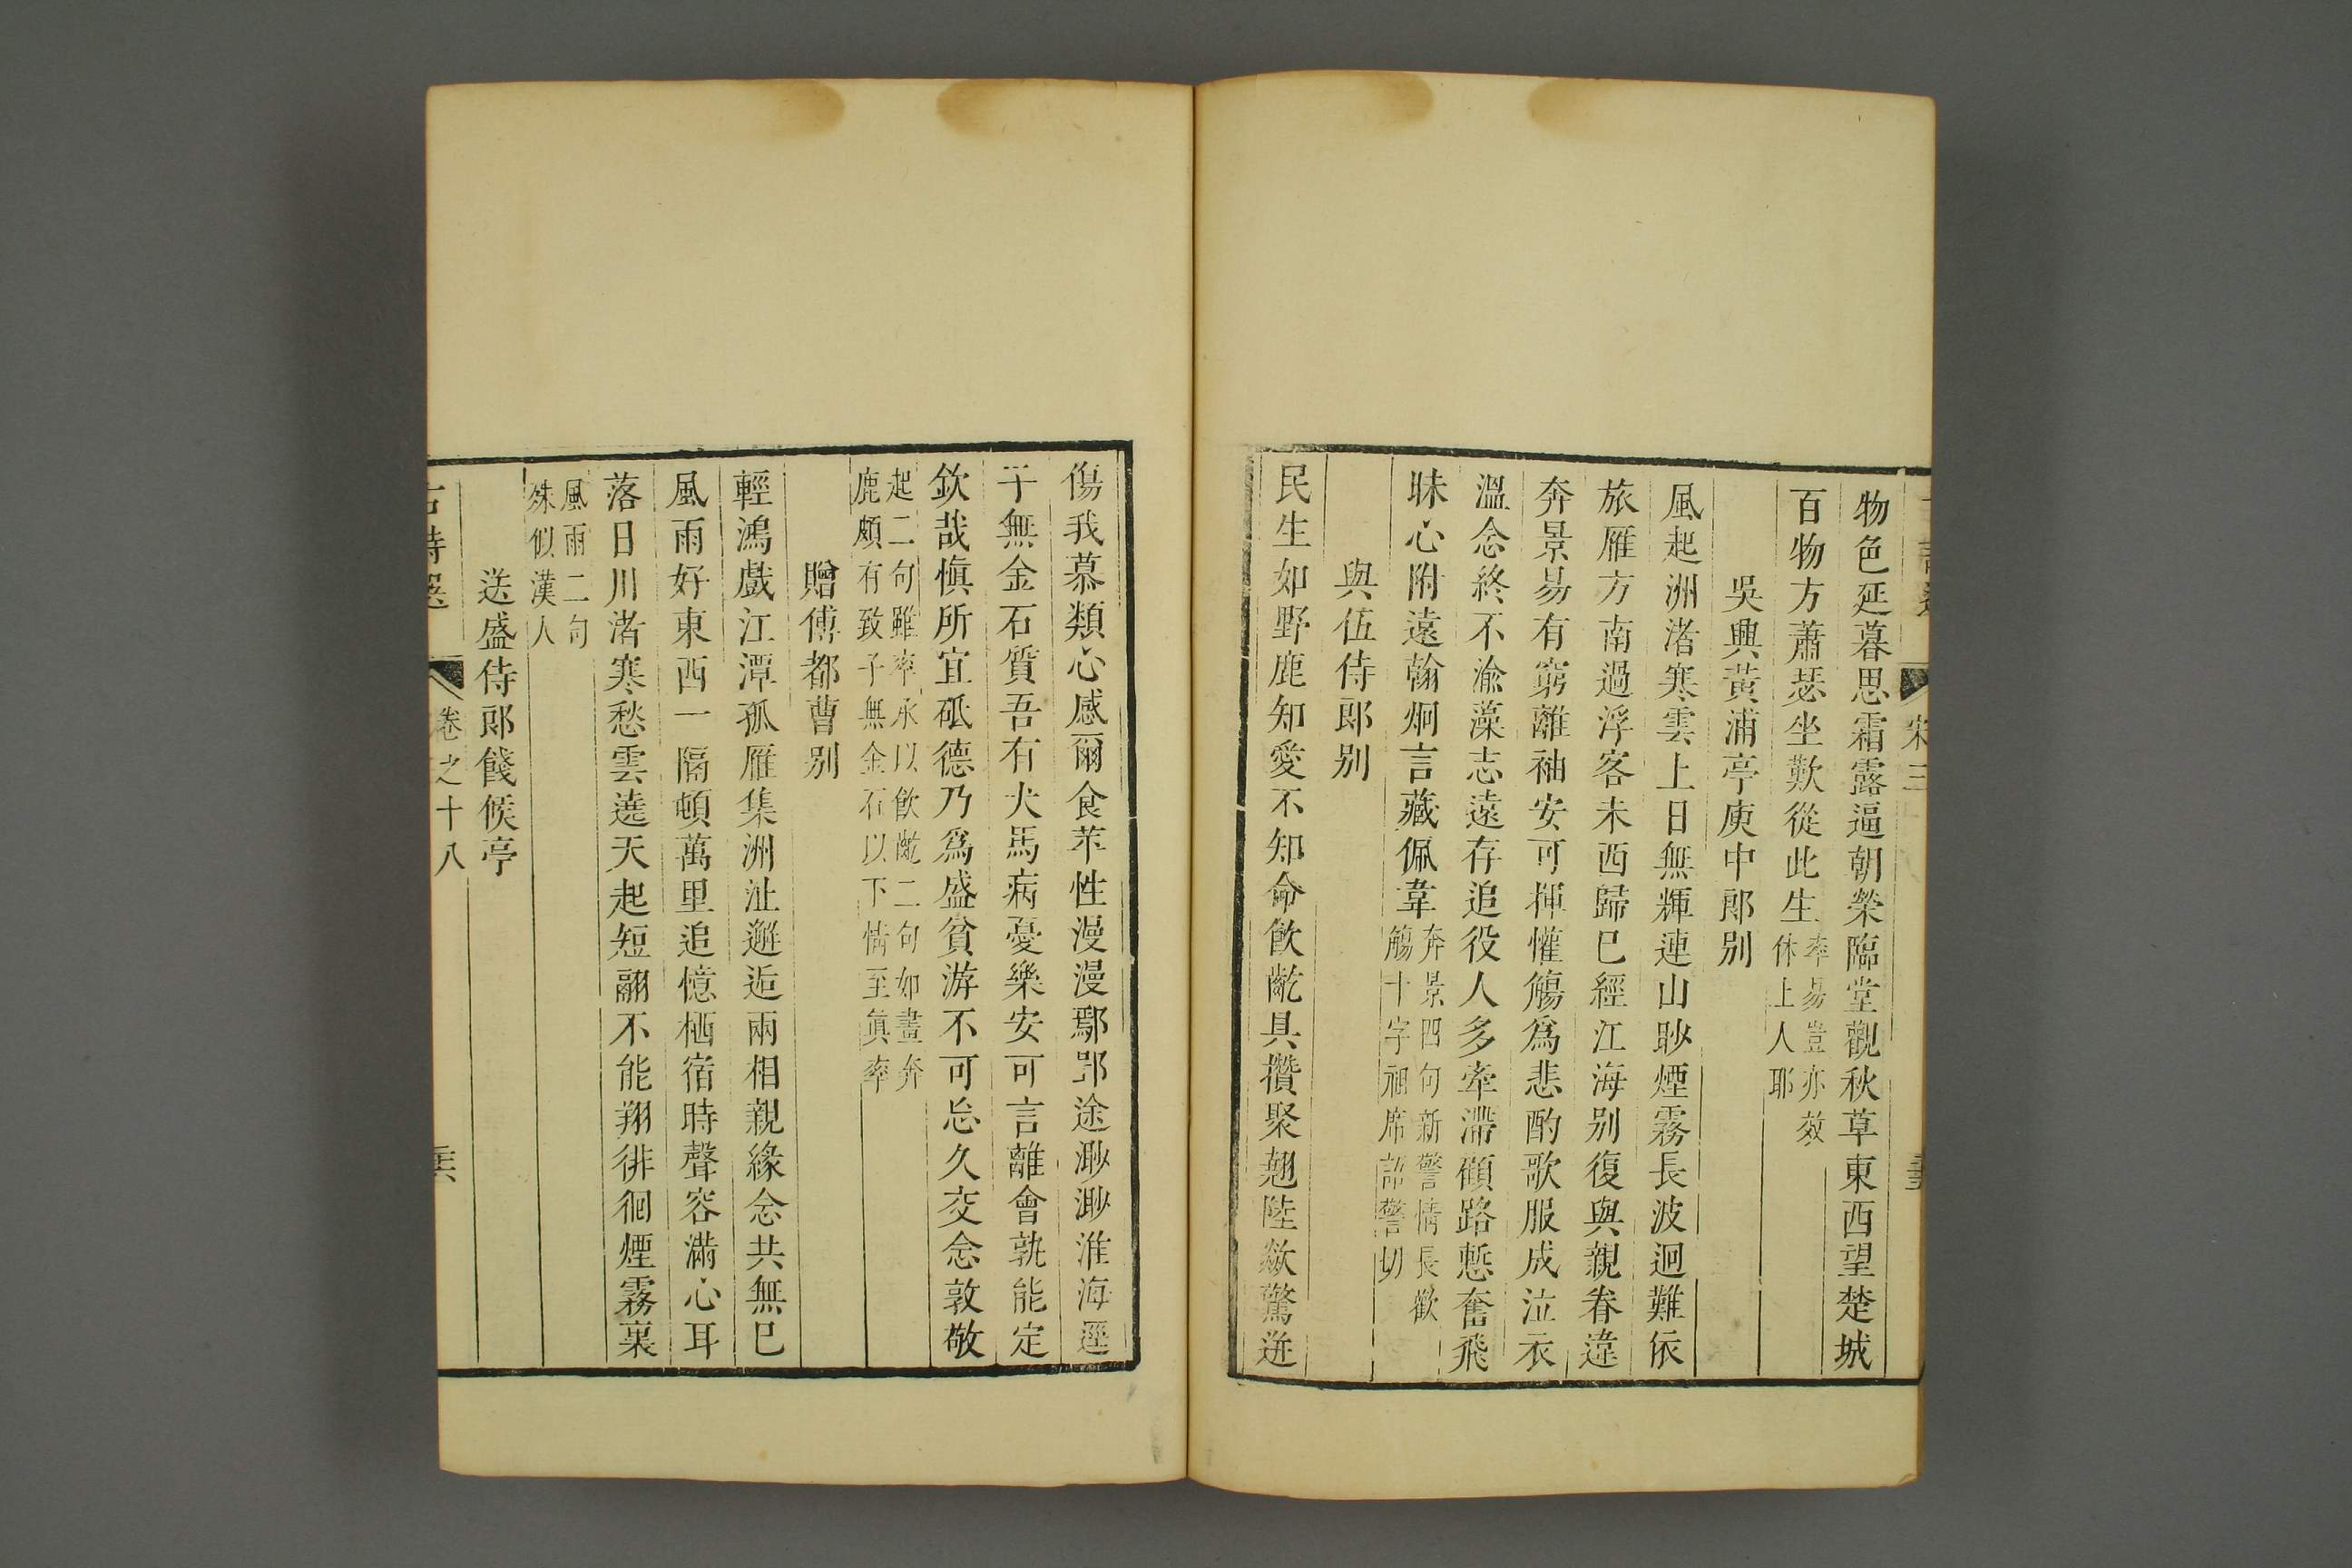 物色延暮思霜露逼朝榮臨堂觀秋草東西望楚城
百物方蕭瑟坐歎從此生率易豈亦效休上人耶
吳興黃浦亭庾中郎别
風起洲渚寒雲上日無輝連山眇煙霧長波迥難依
旅雁方南過浮客未西歸巳經江海别復與親眷違
奔景易有窮離袖安可揮懽觴爲悲酌歌服成泣衣
溫念終不渝藻志遠存追役人多牽滯顧路慙奮飛
昧心附遠翰炯言藏佩韋奔景四句新警情長歡觴十字祖席語警切
與伍侍郎别
民生如野鹿知愛不知命飲齕具攢聚翹陸歘驚迸
傷我慕類心感爾食苹性漫漫鄢郢途渺渺淮海逕
子無金石質吾有犬馬病憂樂安可言離會孰能定
欽哉愼所宜砥德乃爲盛貧游不可忘久交念敦敬
起二句雖率承以飲齕二句如畫奔鹿頗有致子無金石以下情至眞率
贈傅都曹别
輕鴻戲江潭孤雁集洲沚邂逅兩相親緣念共無巳
風雨好東西一隔頓萬里追憶栖宿時聲容滿心耳
落日川渚寒愁雲遶天起短翮不能翔徘徊煙霧裏
風雨二句殊似漢人
送盛侍郎餞候亭
古詩選 卷之十八